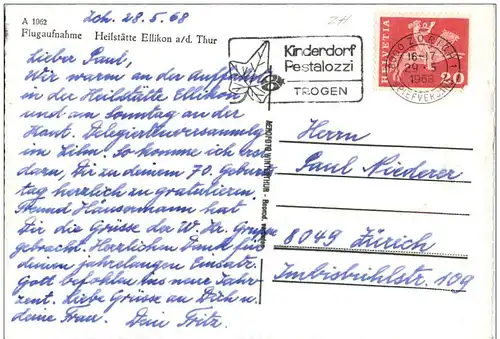 A 1062
Flugaufnahme Heilstätte Ellikon a/d. Thur
Zch. 28.5.68
Lieber Paul,
Wir waren an der Auffahrt
in der Heilstätte Ellikon
und am Sonntag an der
Kant. Delegiertenversammlg
im Zihn. So komme ich erst
dazu, Dir zu deinem 70. Geburts
tag herzlich zu gratulieren.
Freund Häusermann hat
Dir die Grüsse der W. Kr. Gruppe
gebracht. Herzlichen Dank für
deinen jahrelangen Einsatz.
Gott befohlen ins neue Jahr-
zent. Liebe Grüsse an Dich u.
deine Frau. Dein Fritz.
ZH
Kinderdorf
Pestalozzi
TROGEN
HELVETIA
20
8000 ZÜRICH
16-17
29.5
1968
BRIEFVERSAND
Herrn
Paul Niederer
8049 Zürich
Imbisbühlstr. 109